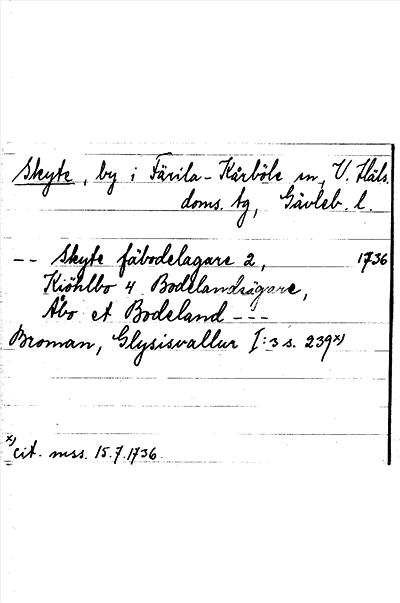 Skyte, by i Färila-Kårböle sn, V. Häls.
doms. tg, Gävleb. l.
-- Skyte fäbodelagare 2, 1736
Kiöhlbo 4 Bodelandsägare,
Åbo et Bodeland ---
Broman, Glysisvallur I:3 s. 239x)
x) cit. mss. 15.7.1736.